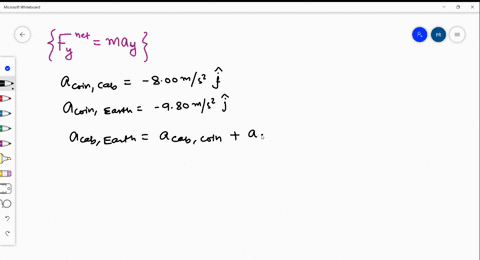 Microsoft Whiteboard
{F_y^net = may}
a coin, cab = -8.00 m/s² ĵ
a coin, Earth = -9.80 m/s² ĵ
a cab, Earth = a cab, coin + a